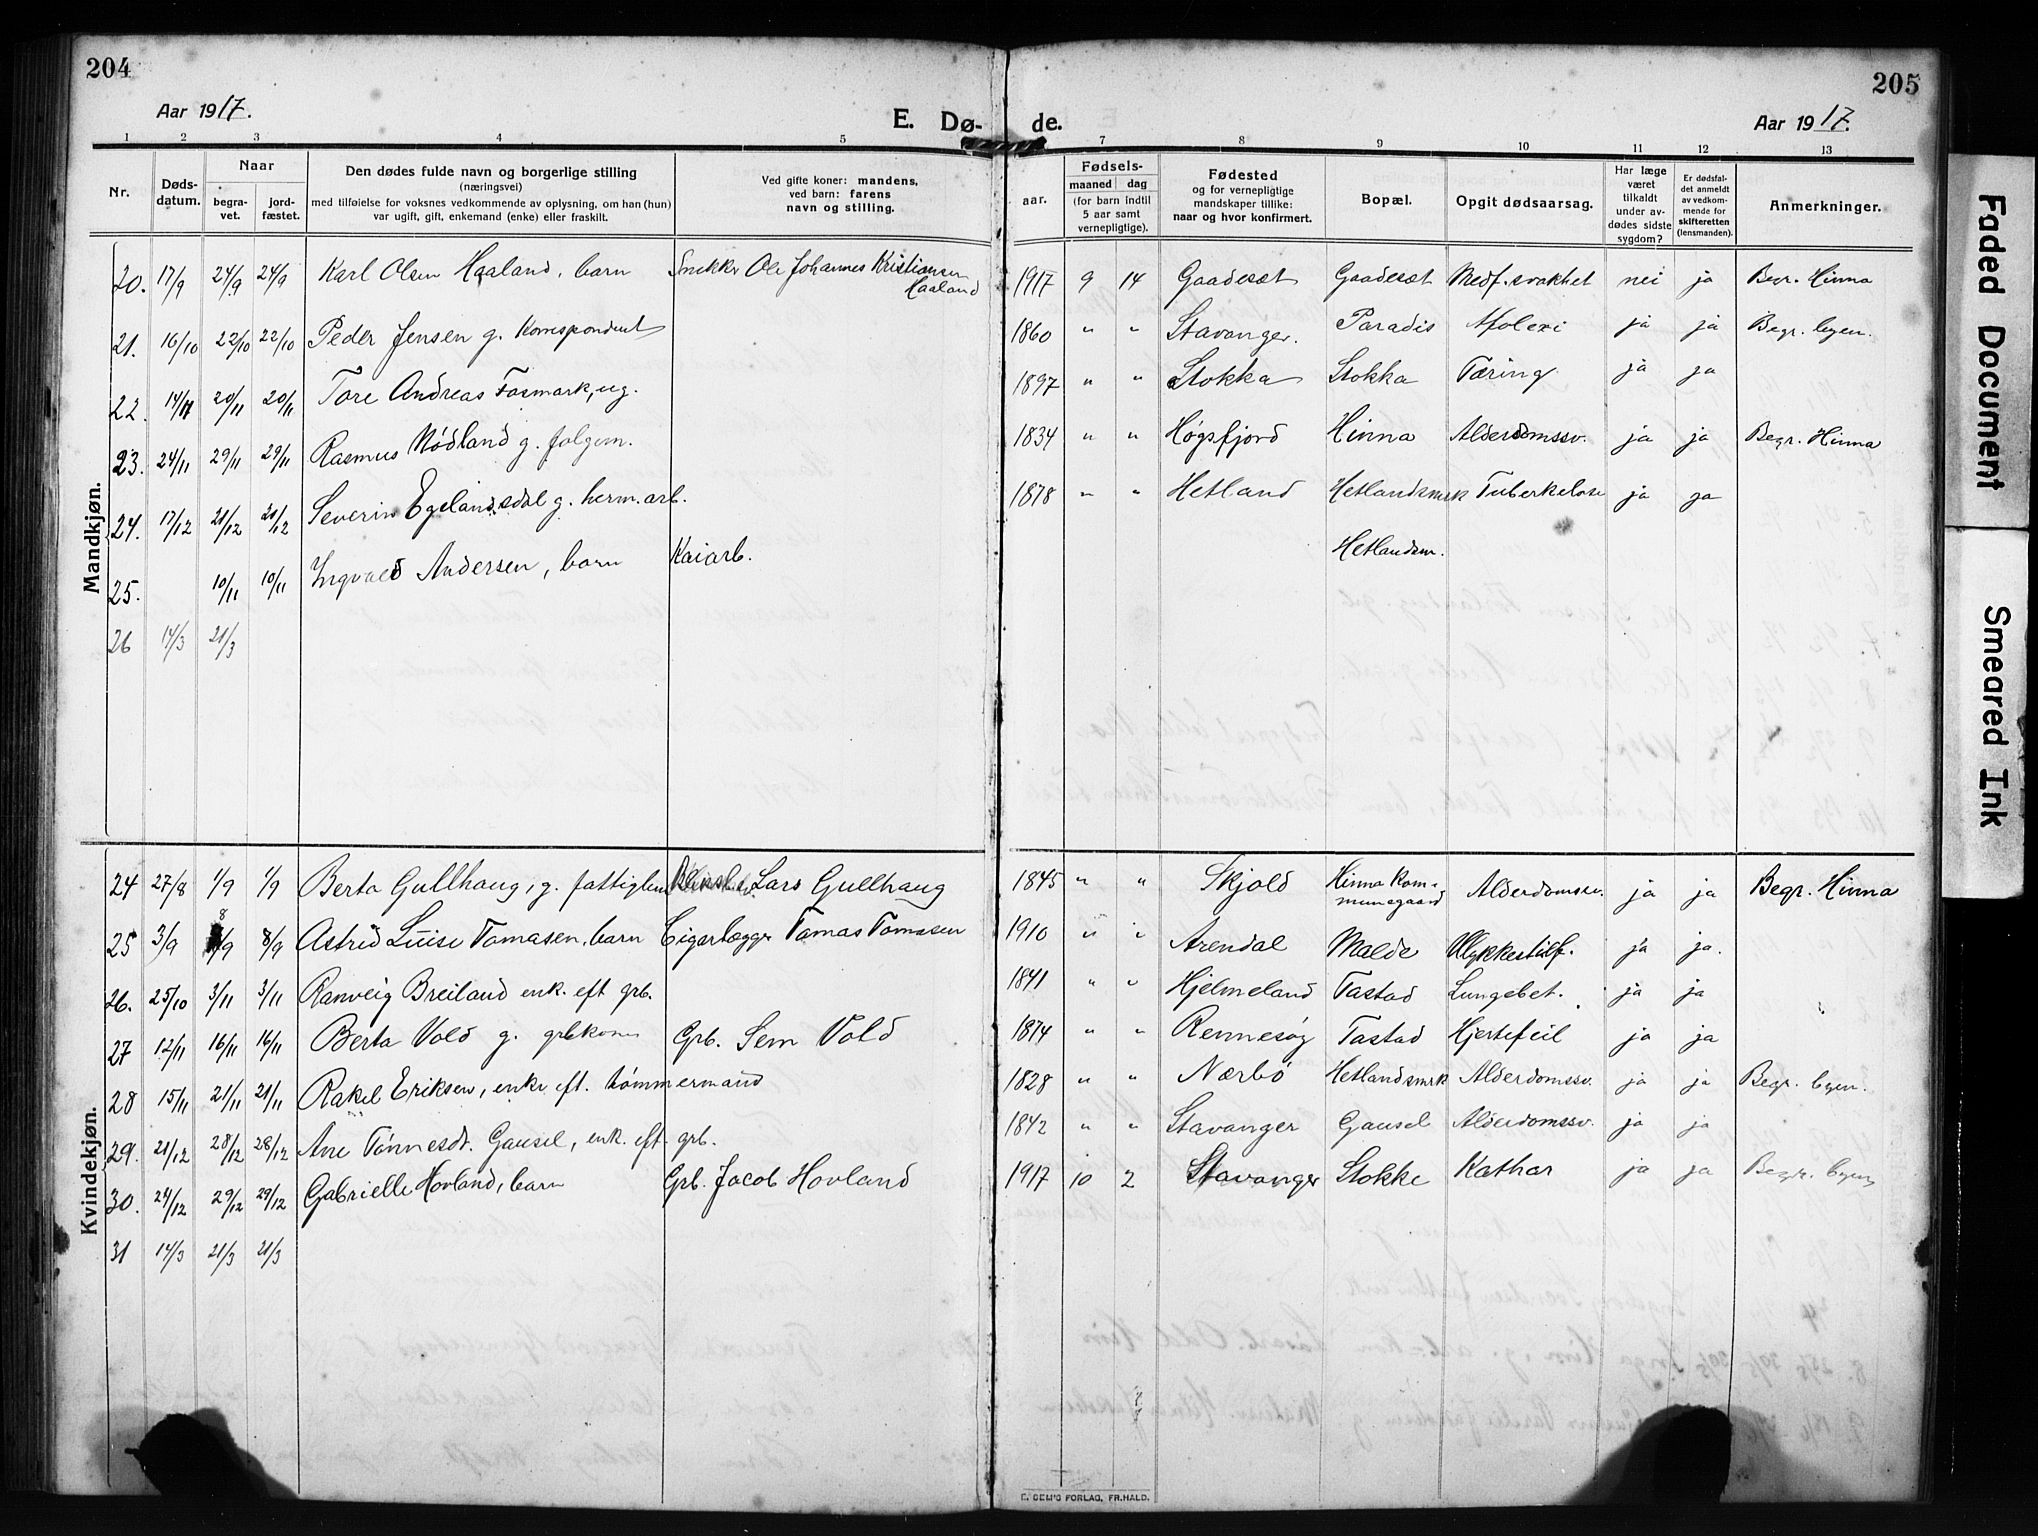 204
Aar 1917.
E. Dø-
1 2 3 4 5
Nr.
Døds-
datum.
Naar
begra-
vet.
jord-
fæstet.
Den dødes fulde navn og borgerlige stilling
(næringsvei)
med tilføielse for voksnes vedkommende av oplysning, om han (hun)
var ugift, gift, enkemand (enke) eller fraskilt.
Ved gifte koner: mandens,
ved barn: farens
navn og stilling.
Mandkjøn.
20. 17/9 24/9 24/9 Karl Olsen Haaland, barn Snekkr Ole Johannes Kristiansen
Haaland
21. 16/10 22/10 22/10 Peder Jensen g. Korrespondent
22. 14/11 20/11 20/11 Tore Andreas Fosmark, ug.
23. 24/11 29/11 29/11 Rasmus Nødland g. folgem.
24. 17/12 21/12 21/12 Severin Egelandsdal g. herm.arb.
25. 10/11 10/11 Ingvald Andersen, barn Kaiarb.
26 14/3 21/3
Kvindekjøn.
24 27/8 1/9 1/9 Berta Gullhaug, g. fattiglem Lars Gullhaug
25 3/9 8/9 8/9 Astrid Luise Tomasen, barn Cigarlægger Tomas Tomasen
26. 25/10 3/11 3/11 Ranveig Breiland enk. eft grb.
27 12/11 16/11 16/11 Berta Vold g. grbkone Grb. Sem Vold
28 15/11 21/11 21/11 Rakel Eriksen, enke eft. tømmermand
29. 21/12 28/12 28/12 Ane Tønnesdt. Gausel, enk. eft. grb.
30. 24/12 29/12 29/12 Gabrielle Hovland, barn Grb. Jacob Hovland
31 14/3 21/3 21/3
205
de.
Aar 1917.
7 8 9 10 11 12 13
Fødsels-
aar.
maaned dag
(for barn indtil
5 aar samt
vernepligtige).
Fødested
og for vernepligtige
mandskaper tillike:
naar og hvor konfirmert.
Bopæl.
Opgit dødsaarsag.
Har læge
været
tilkaldt
under av-
dødes sidste
sygdom?
Er dødsfal-
det anmeldt
av vedkom-
mende for
skifteretten
(lensmanden).
Anmerkninger.
1917 9 14 Gaadesæt Gaadesæt Medf. svakhet nei ja Begr. Hinna
1860 " " Stavanger. Paradis Apolexi ja ja Begr. byen.
1897 " " Stokka Stokka Tæring ja ja
1834 " " Høgsfjord Hinna Alderdomssv. ja ja Begr. Hinna
1878 " " Hetland Hetlandsmrk Tuberkelose ja ja
Hetlandsm.
1845 " " Skjold Hinna Kom-
munegaard Alderdomssv. ja ja Begr. Hinna
1910 " " Arendal Malde Ulykkestilf. ja ja.
1841 " " Hjelmeland Tastad Lungebet. ja ja
1874 " " Rennesøy Tastad Hjertefeil ja ja
1828 " " Nærbø Hetlandsmrk Alderdomssv. ja ja Begr. byen.
1842 " " Stavanger Gausel Alderdomssv. ja ja
1917 10 2 Stavanger Stokke Kathar ja ja Begr. byen
E. SEM'S FORLAG, FR.HALD.
Faded Document
Smeared Ink